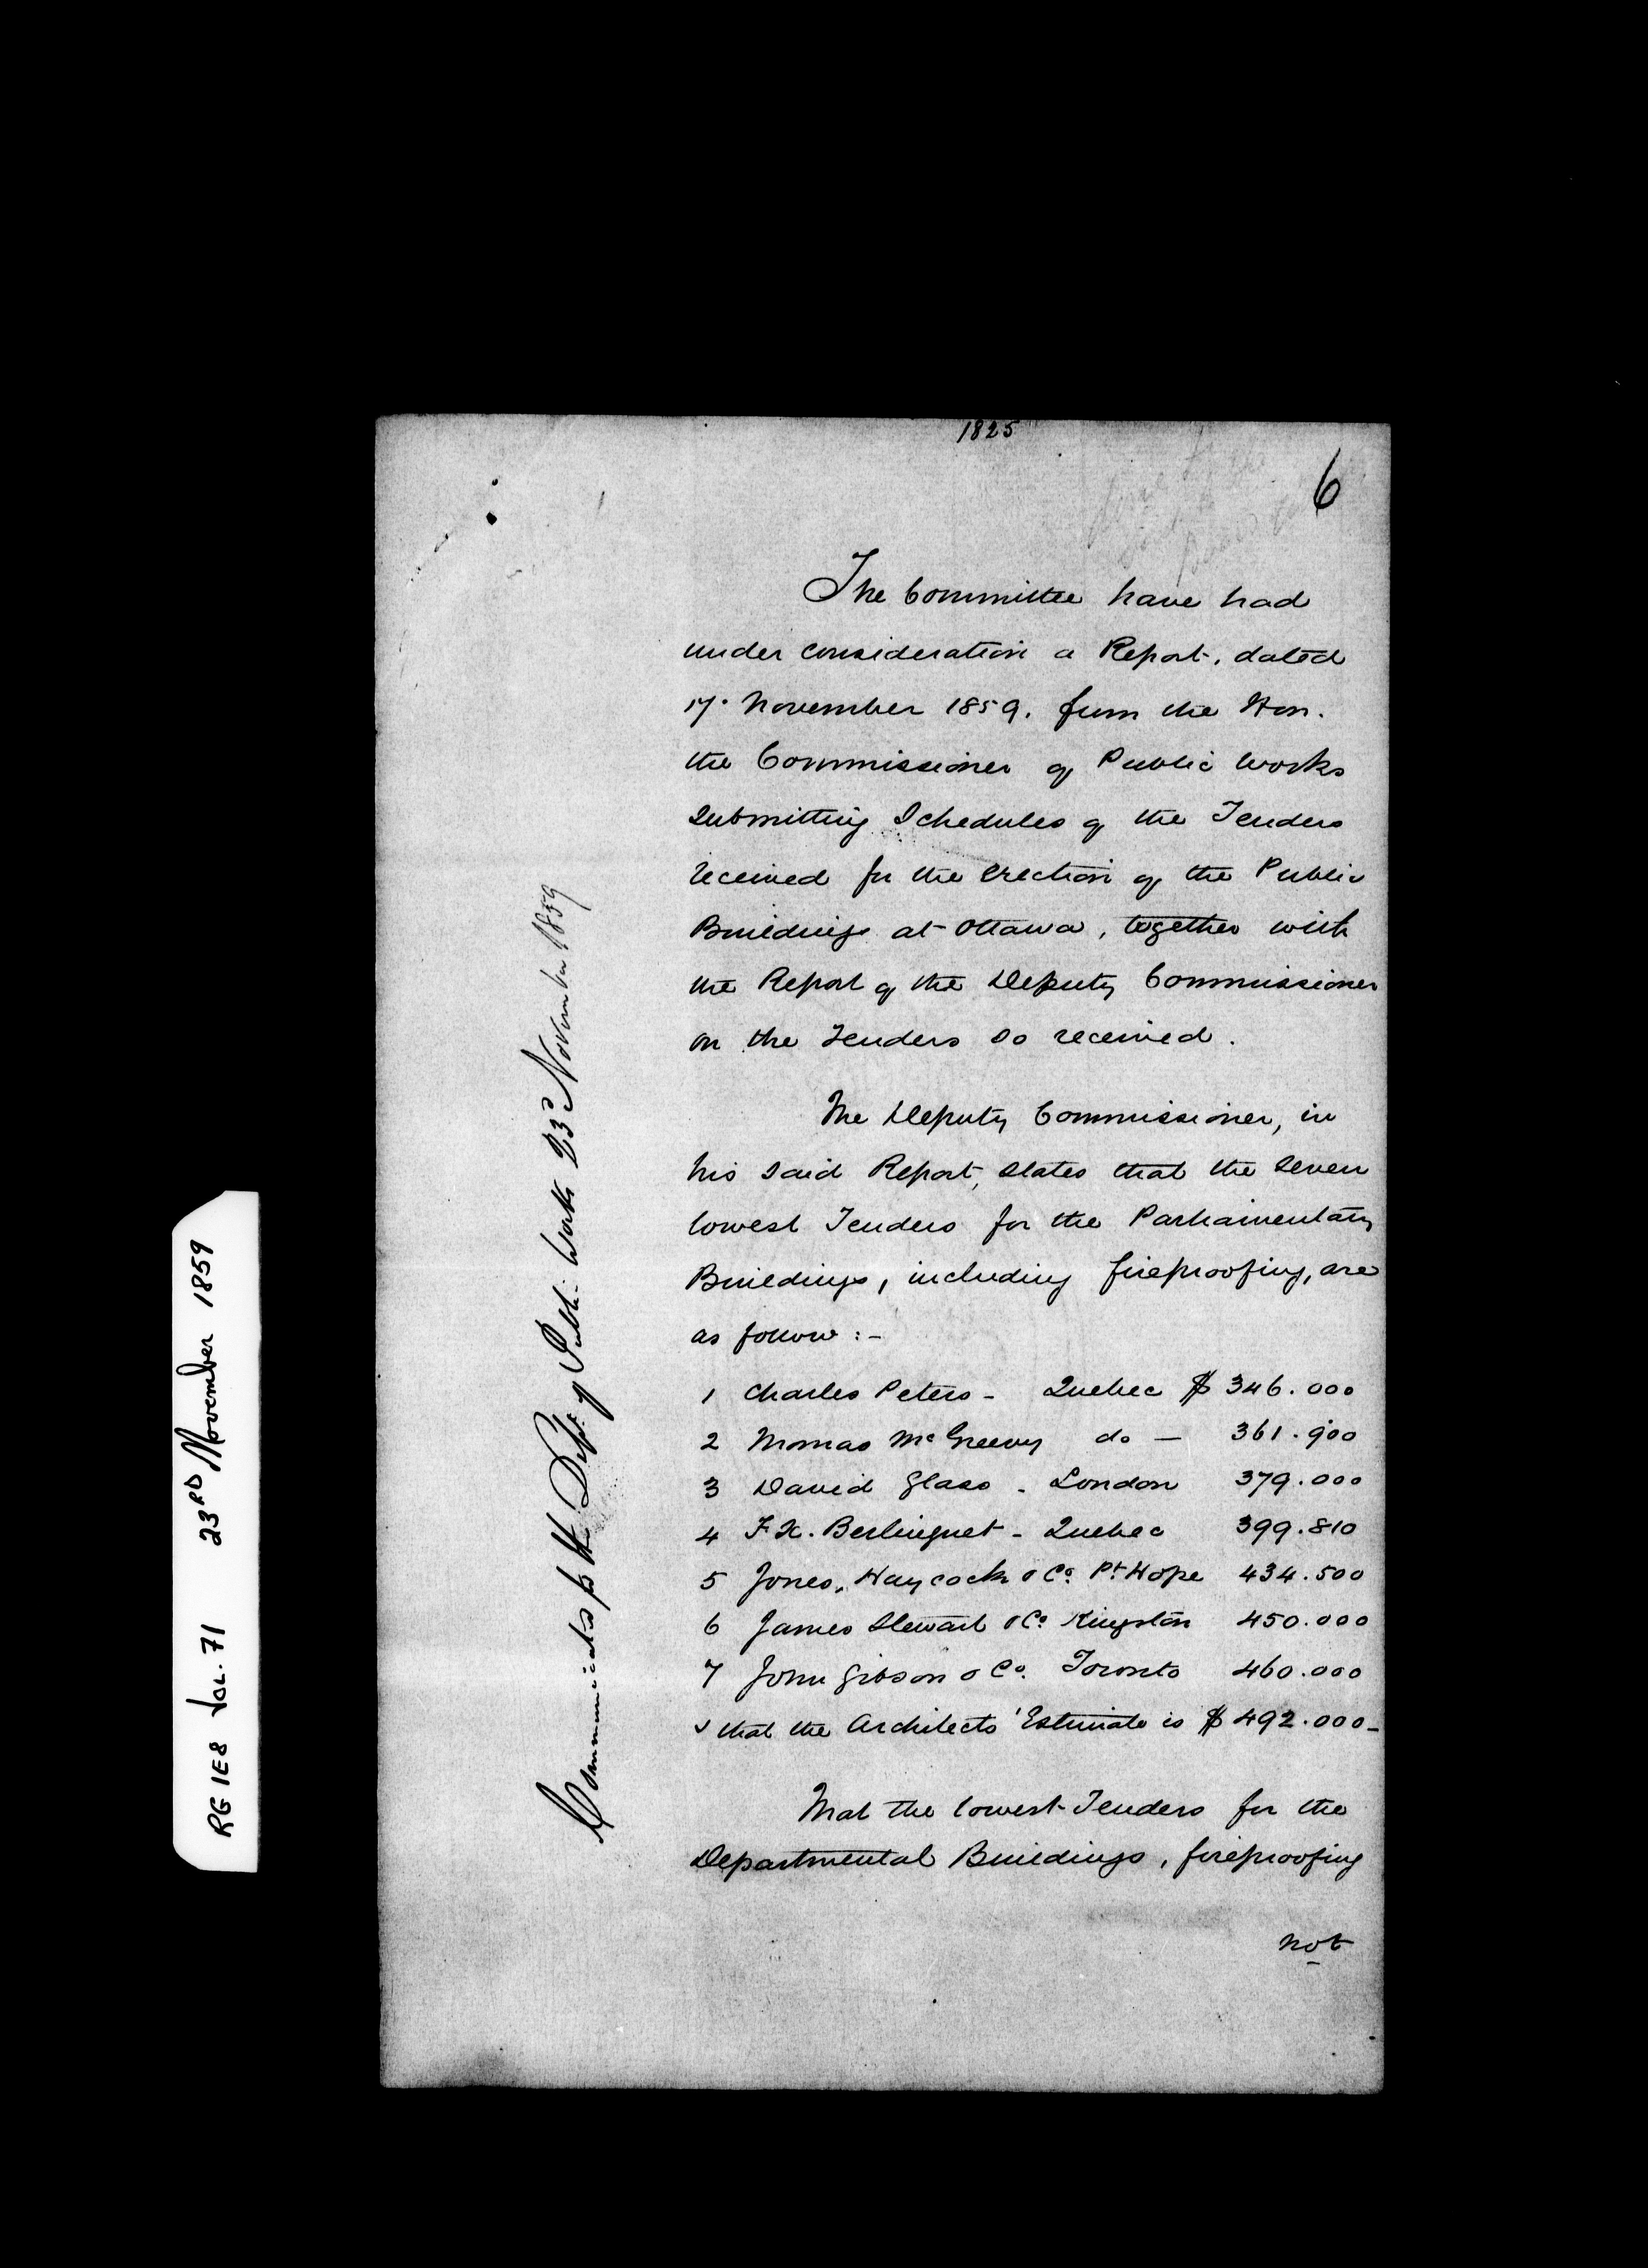 1825
6
The Committee have had
under consideration a Report, dated
17. November 1859. from the Hon.
the Commissioner of Public Works
submitting Schedules of the Tenders
received for the erection of the Public
Buildings at Ottawa, together with
the Report of the Deputy Commissioner
on the Tenders so received.
The Deputy Commissioner, in
his said Report, states that the seven
lowest Tenders for the Parliamentary
Buildings, including fireproofing, are
as follow :-
1 Charles Peters - Quebec $ 346.000
2 Thomas McGreevy do — 361.900
3 David Glass - London 379.000
4 F. X. Berlinguet - Quebec 399.810
5 Jones, Haycock & Co. Pt. Hope 434.500
6 James Stewart & Co. Kingston 450.000
7 John Gibson & Co. Toronto 460.000
& that the Architects' Estimate is $ 492.000-
That the lowest Tenders for the
Departmental Buildings, fireproofing
not
Communicated to the Dept. of Public Works 23d November 1859
RG 1E8 Vol. 71 23RD November 1859